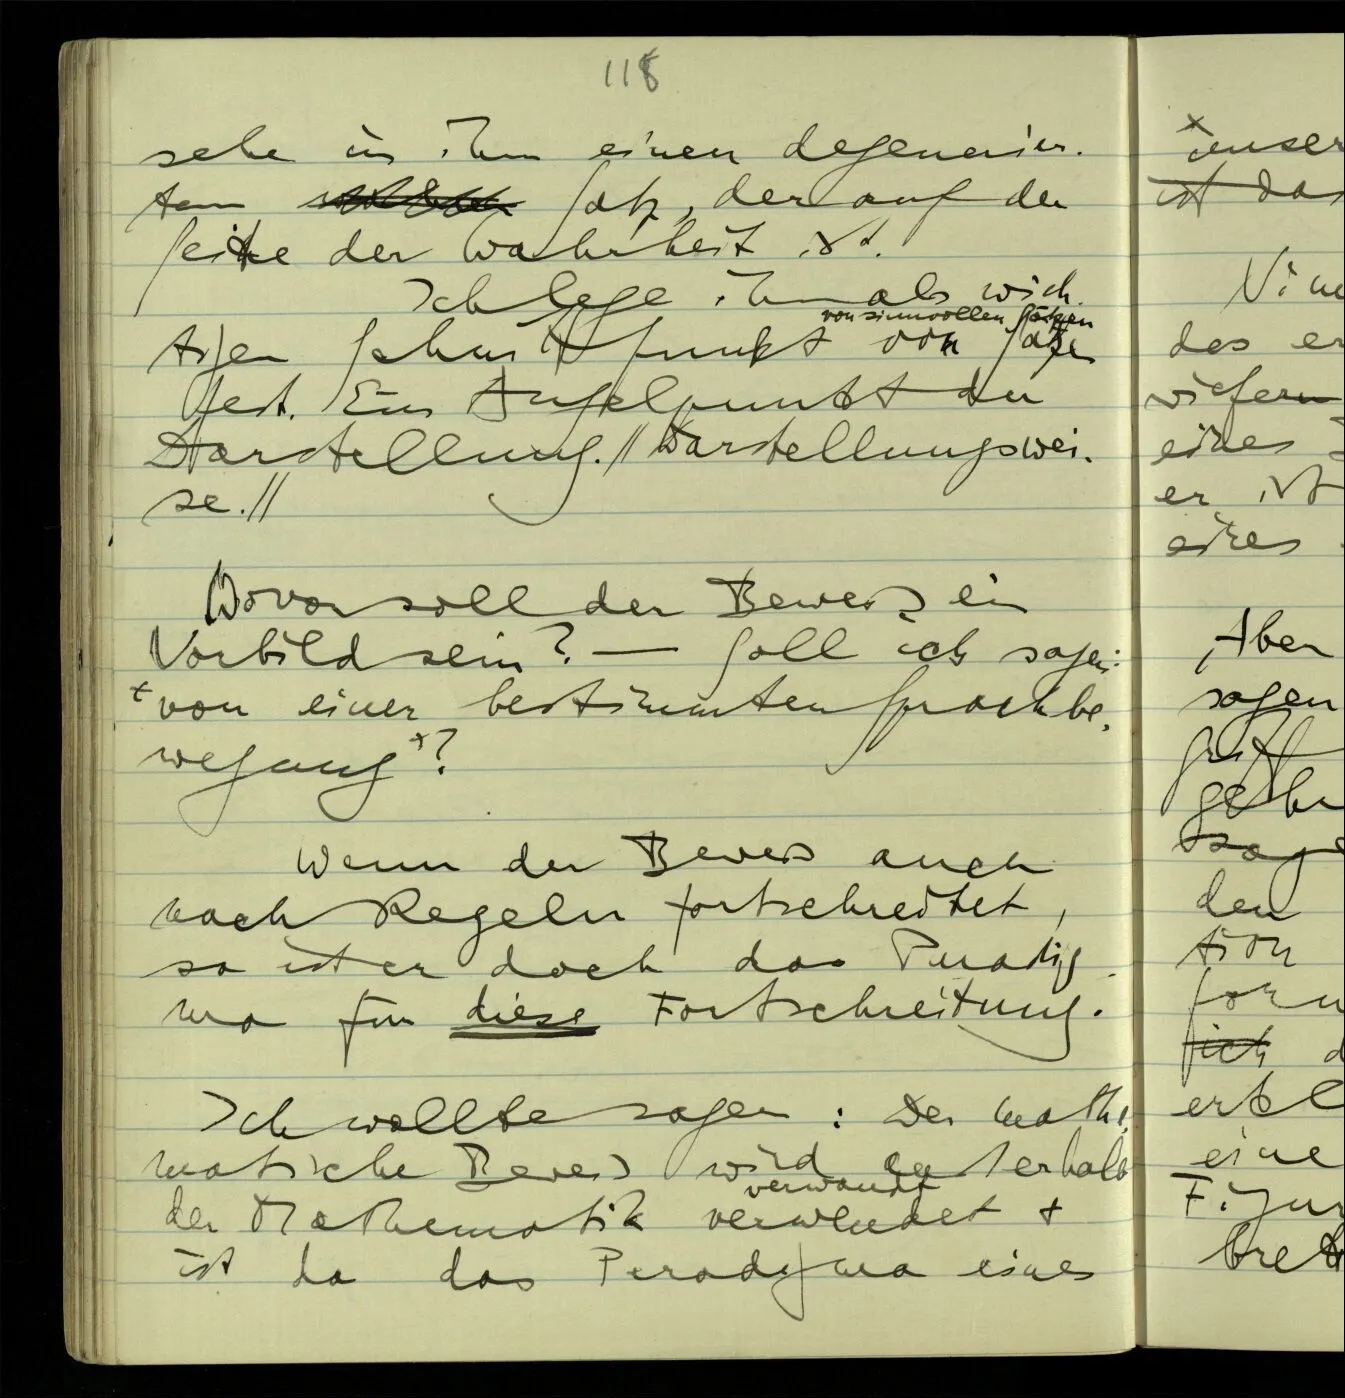 118
sehe in ihm einen degenerier-
ten Satz, der auf der
Seite der Wahrheit ist.
Ich lege ihn als wich-
von sinnvollen Sätzen
tigen Schnittpunkt von Sätzen
fest. Ein Angelpunkt der
Darstellung. // Darstellungswei-
se. //
Wovon soll der Beweis ein
Vorbild sein? — Soll ich sagen:
von einer bestimmten Sprachbe-
wegung?
Wenn der Beweis auch
nach Regeln fortschreitet,
so ist er doch das Paradig-
ma für diese Fortschreitung.
Ich wollte sagen: Der mathe-
matische Beweis wird außerhalb
verwandt
der Mathematik verwendet +
ist da das Paradigma eines
unser
ist das
des er
wiefern
eines
er ist
eines
Aber
sagen
den
tion
eine